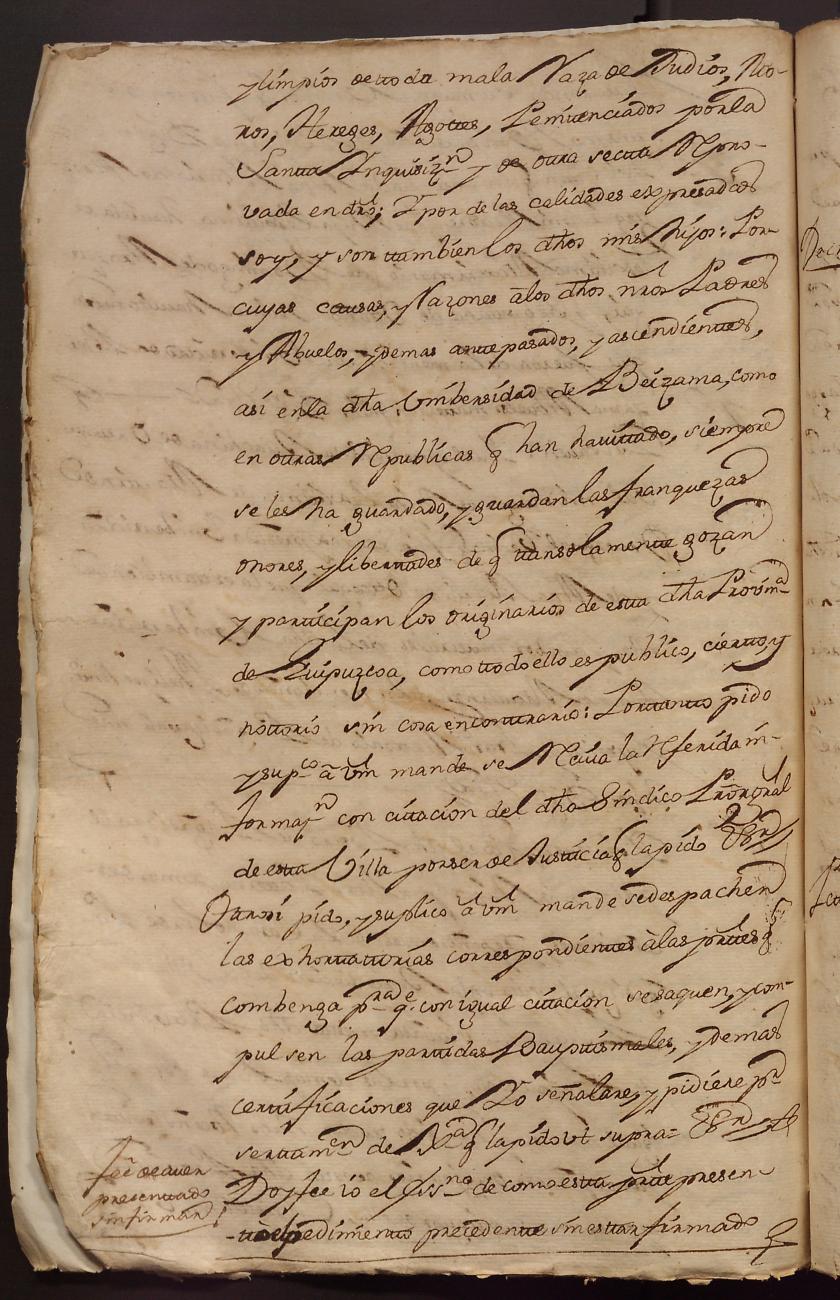 y limpios de toda mala Raza de Judios, Mo-
ros, Hereges, Agotes, Penitenciados por la
Santa Inquisizn y de otra secta Repro-
vada en drō; Y por de las calidades expresadas
soy, y son tambien los dhos mis hijos: Por
cuyas causas, y Razones a los dhos nrōs Padres
y Abuelos, y demas antepasados, y ascendientes,
asi en la dha Vnibersidad de Beizama, como
en otras Republicas q han havitado, siempre
se les ha guardado, y guardan las franquezas
onores, y libertades de q tan solamente gozan
y participan los originarios de esta dha Provinª
de Guipuzcoa, como todo ello es publico, cierto, y
nottorio sin cosa en contrario: Por tanto pido
y supco a Vm mande se Reciva la Referida in-
formazn con citacion del dho Sindico Prōr gral
de esta Villa por ser de Justicia q la pido
Otrosi pido, y suplico a Vm mande se despachen
las exhortatorias correspondientes à las partes q
combenga pra de q con igual citacion se saquen, y con-
pulsen las partidas Bauptismales, y demas
certificaciones que Yo señalare, y pidiere pr
ser tamen de Jusª q la pido vt supra=
Doy fee io el Essno de como esta parte presen-
-tò el pedimento precedente sin estar firmado
Feè de aver
presentado
sin firmar